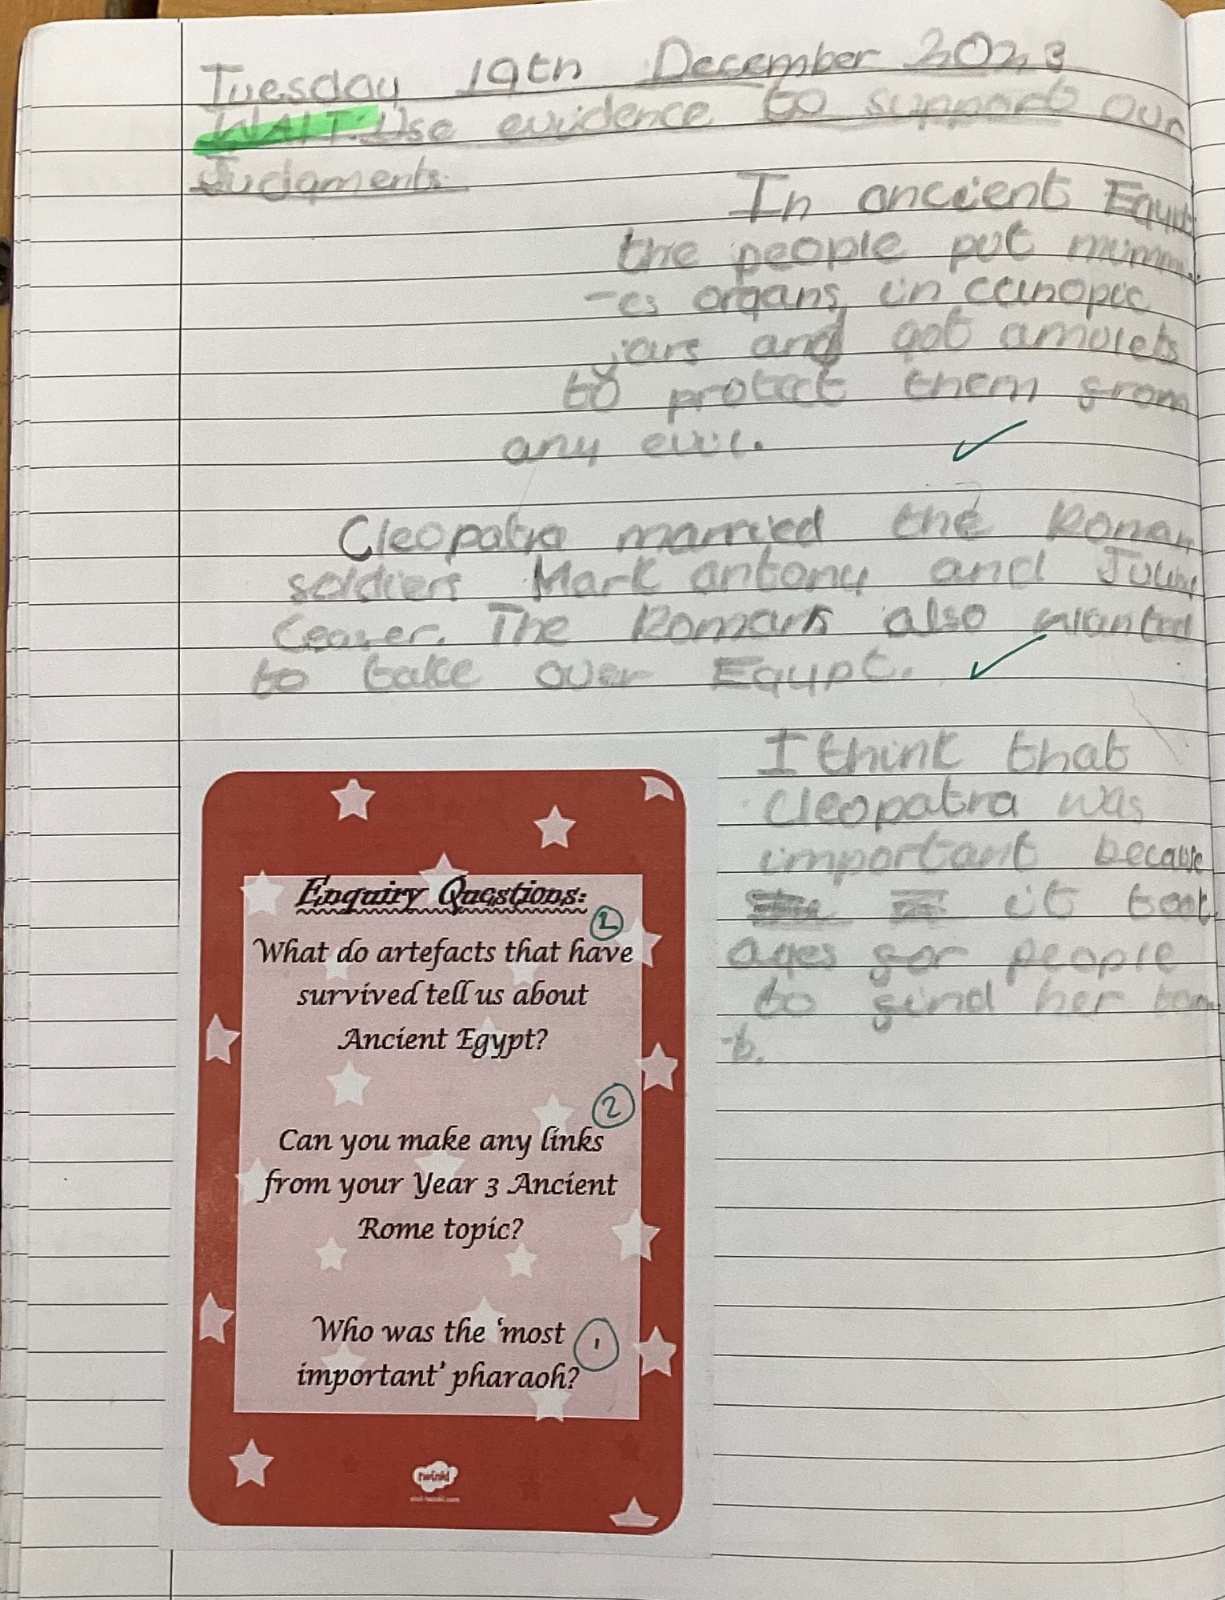 Tuesday 19th December 2023
WALT: Use evidence to support our
Judgments.
In ancient Egypt
the people put mummi
-es organs in canopic
jars and got amulets
to protect them from
any evil.
Cleopatra married the Roman
soldiers Mark antony and
Ceaser. The Romans also wanted
to take over Egypt.
I think that
Cleopatra was
important because
it took
ages for people
to find her tom
-b.
Enquiry Questions:
2
What do artefacts that have
survived tell us about
Ancient Egypt?
2
Can you make any links
from your Year 3 Ancient
Rome topic?
Who was the 'most
1
important' pharaoh?
twinkl